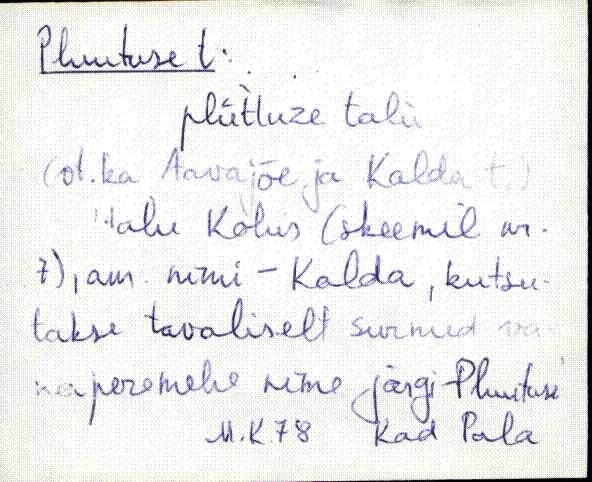 Pluutuse t.
plùtluze talu
(vt. ka Aavajõe ja Kalda t.)
talu Kõlus (skeemil nr.
7), am. nimi – Kalda, kutsu-
takse tavaliselt surnud va-
naperemehe nime järgi Pluutuse
M.K 78 Kad Pala